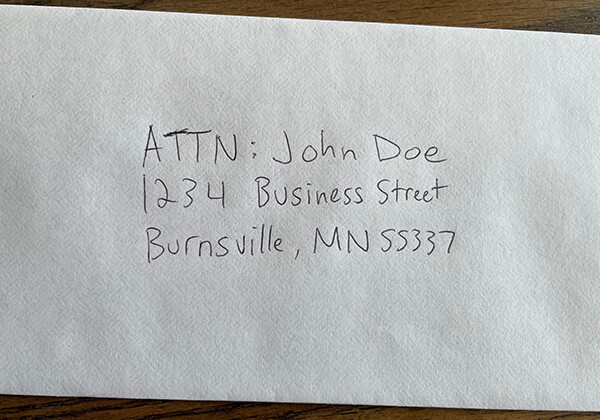 ATTN: John Doe
1234 Business Street
Burnsville, MN 55337